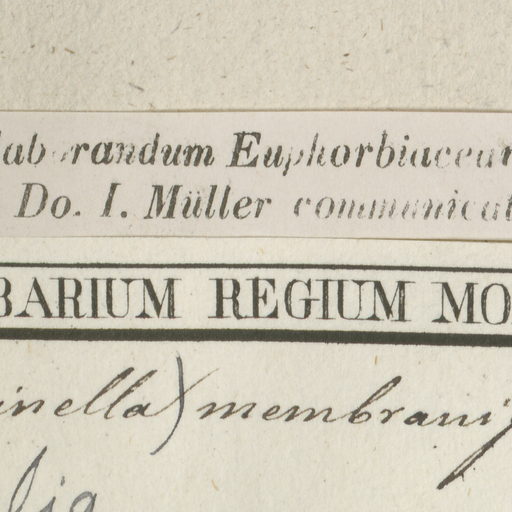 laborandum Euphorbiacear
Do. I. Müller communicat
BARIUM REGIUM MO
inella) membrani
lia